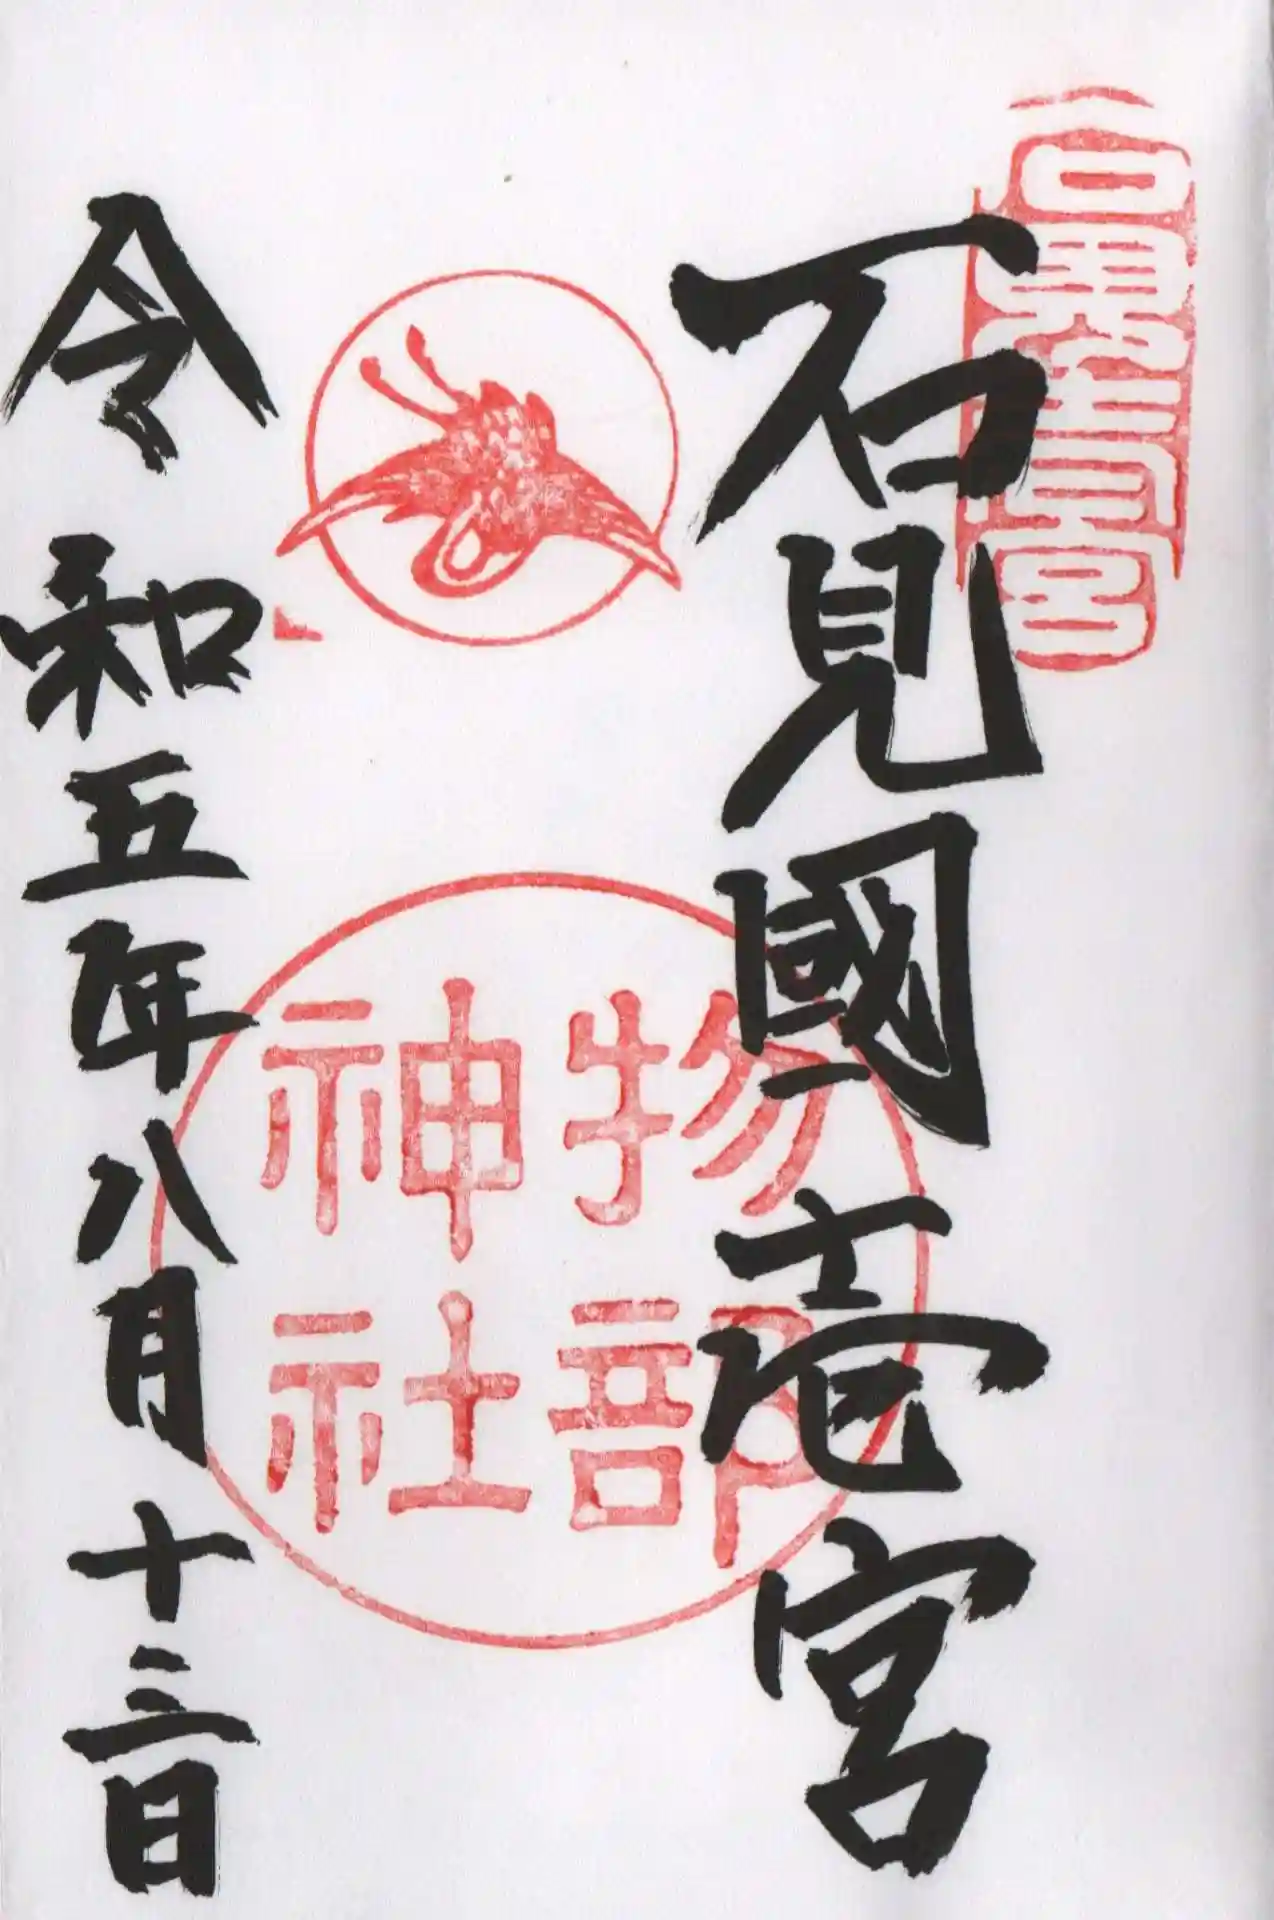 石見國壱宮
物部
神社
令和五年八月十三日